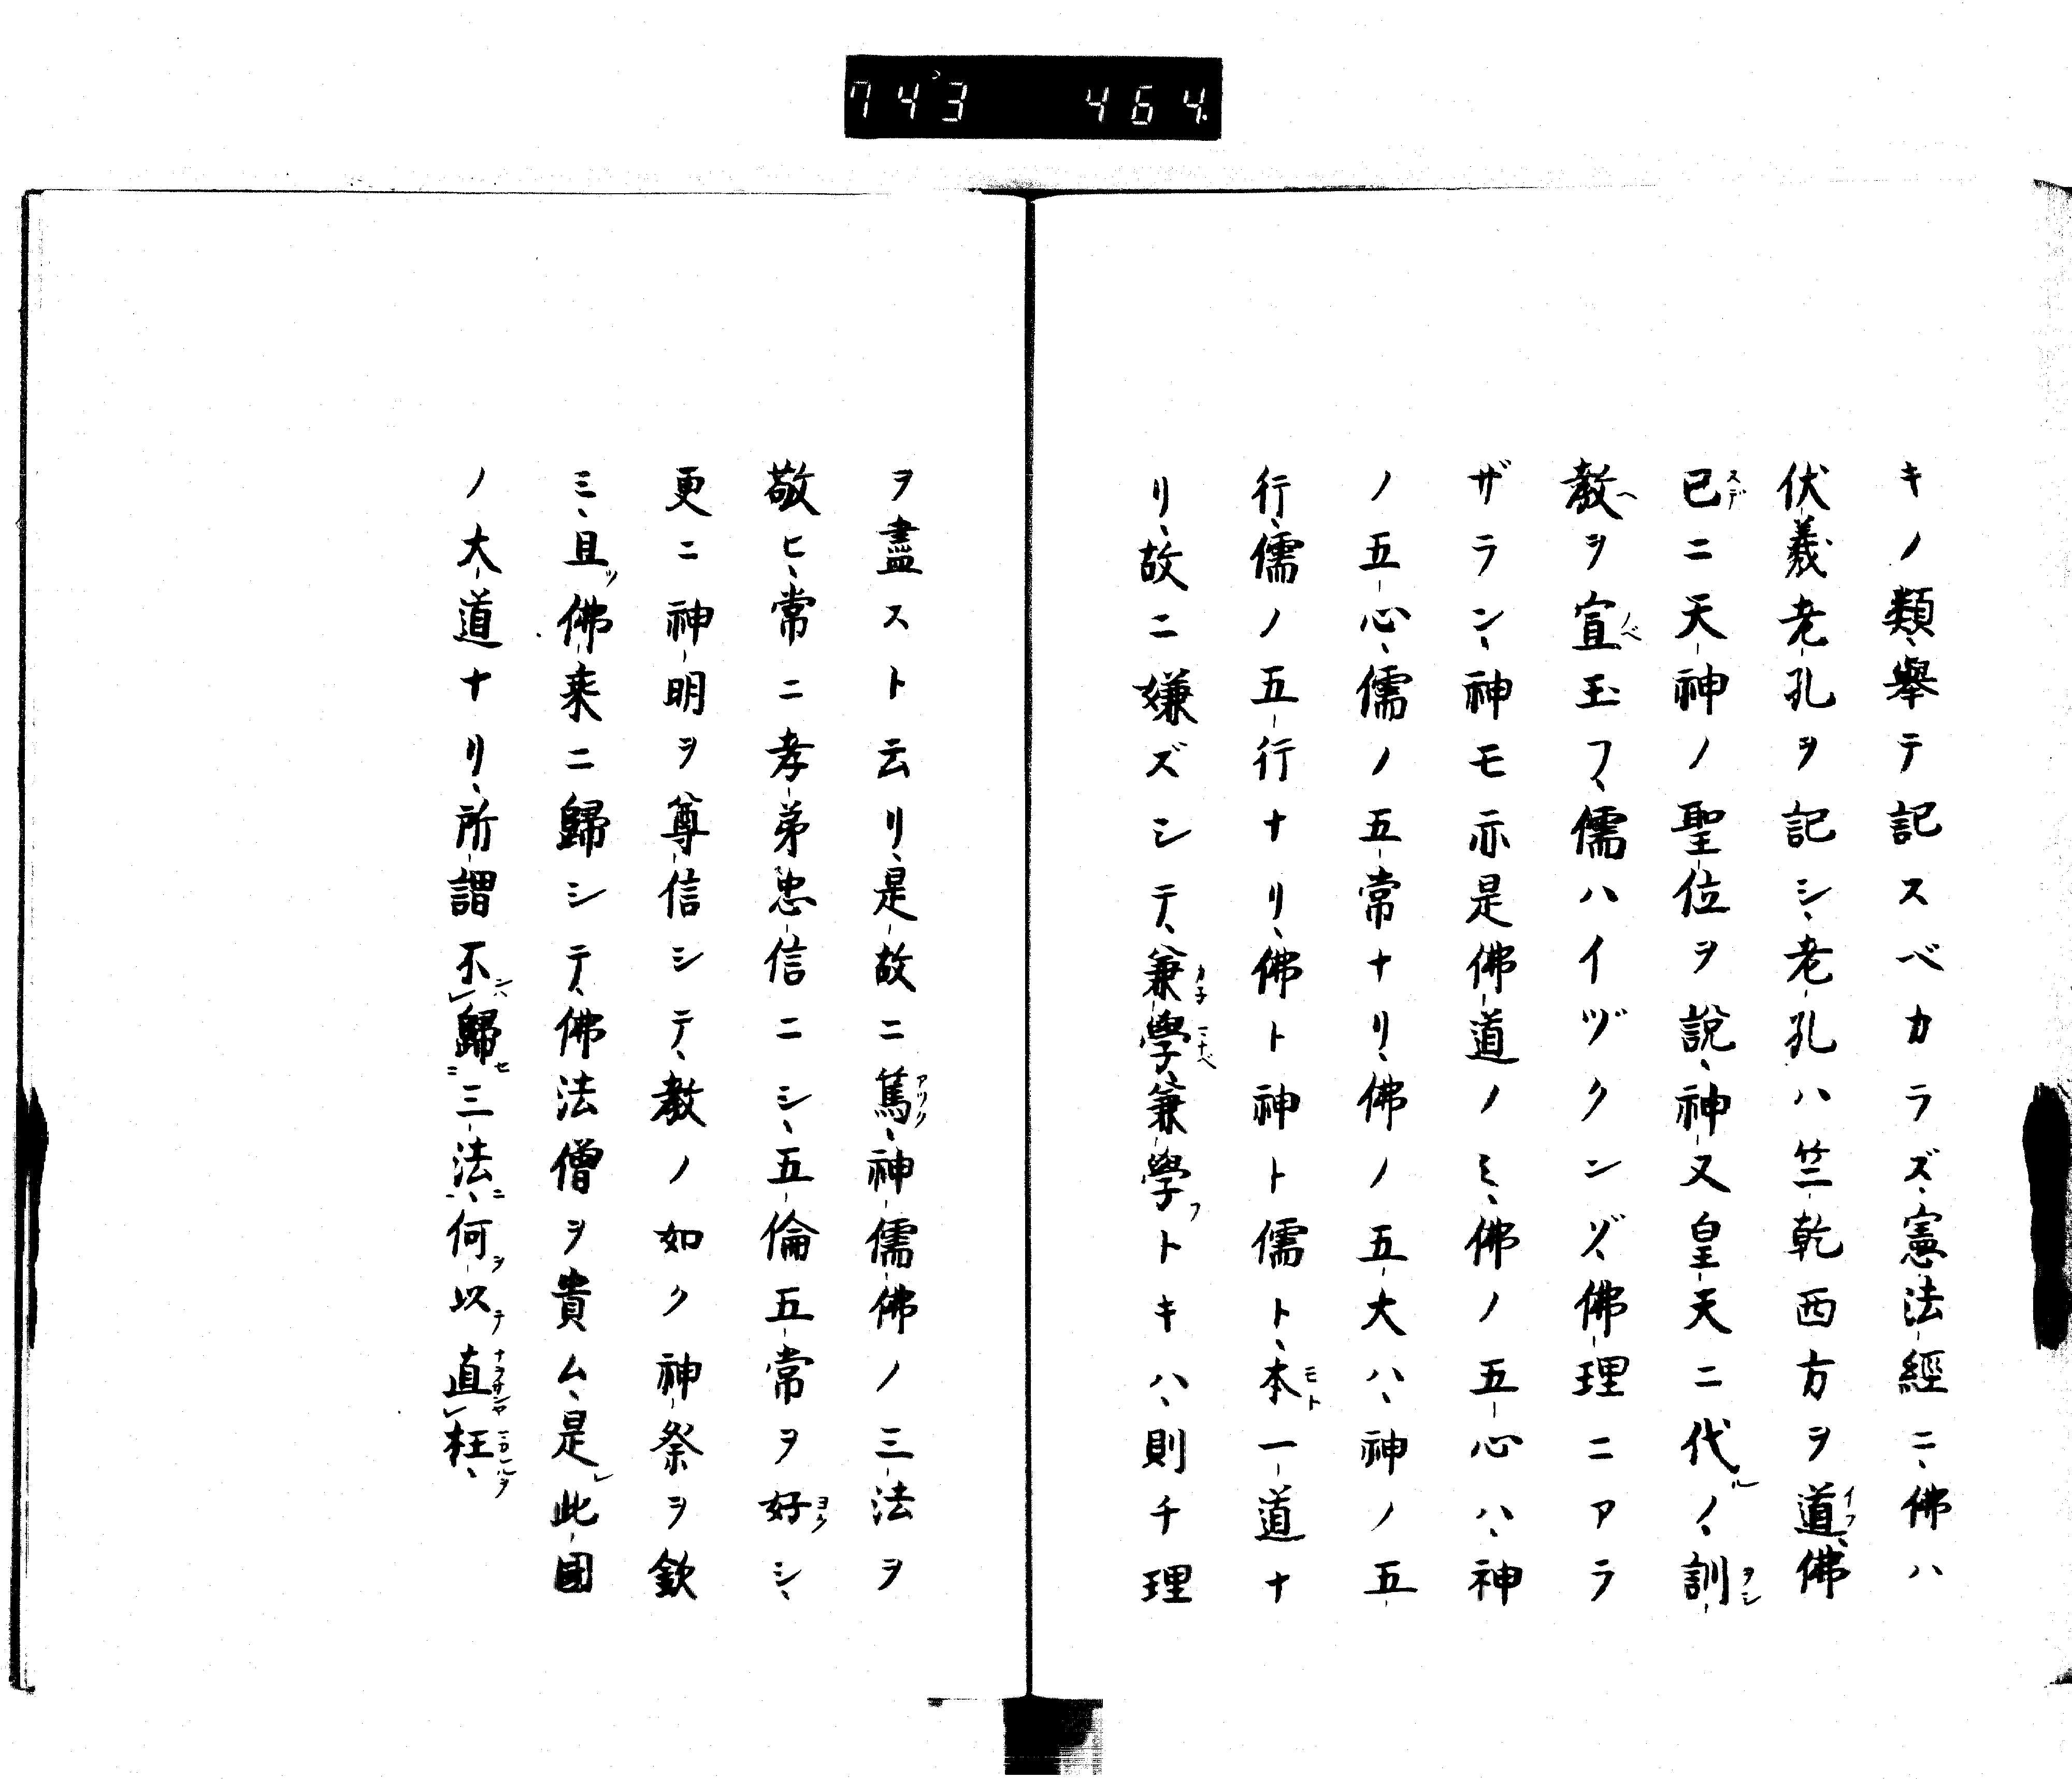 743 464
キノ類、擧テ記スベカラズ、憲法經ニ、佛ハ
伏羲老孔ヲ記シ、老孔ハ竺乾西方ヲ道、佛
已ニ天神ノ聖位ヲ説、神又皇天ニ代ノ、訓
教ヲ宣玉フ、儒ハイヅクンゾ、佛理ニアラ
ザラン、神モ亦是佛道ノミ、佛ノ五心ハ、神
ノ五心、儒ノ五常ナリ、佛ノ五大ハ、神ノ五
行、儒ノ五行ナリ、佛ト神ト儒ト、本一道ナ
リ、故ニ嫌ズシテ、兼學、兼學トキハ、則チ理
ヲ盡スト云リ、是故ニ篤、神儒佛ノ三法ヲ
敬ヒ、常ニ孝弟忠信ニシ、五倫五常ヲ好シ、
更ニ神明ヲ尊信シテ、教ノ如ク神祭ヲ欽
ミ、且佛乘ニ歸シテ、佛法僧ヲ貴ム、是此國
ノ大道ナリ、所謂不歸三法、何以直枉、